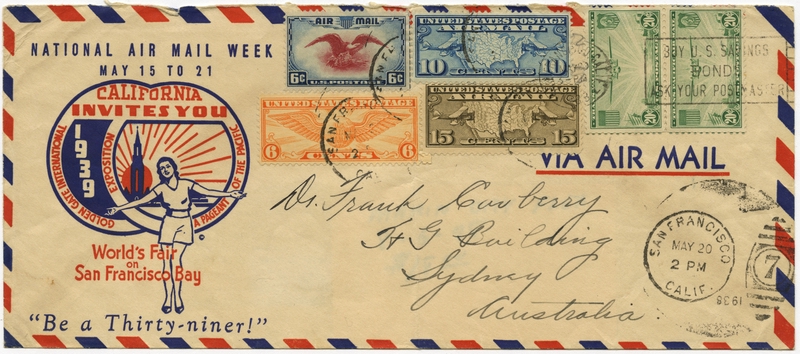 NATIONAL AIR MAIL WEEK
MAY 15 TO 21
CALIFORNIA
INVITES YOU
1939
GOLDEN GATE INTERNATIONAL
EXPOSITION
A PAGEANT OF THE PACIFIC
World's Fair
on
San Francisco Bay
"Be a Thirty-niner!"
AIR MAIL
6¢ U.S. POSTAGE 6¢
UNITED STATES POSTAGE
AIR MAIL
10 10
UNITED STATES POSTAGE
6 CENTS 6
UNITED STATES POSTAGE
AIR MAIL
15 15
SAN FR
BUY U.S. SAVINGS
BONDS
ASK YOUR POSTMASTER
VIA AIR MAIL
Dr. Frank
HG Building
Sydney
Australia
SAN FRANCISCO
MAY 20
2 PM
CALIF.
1938
7